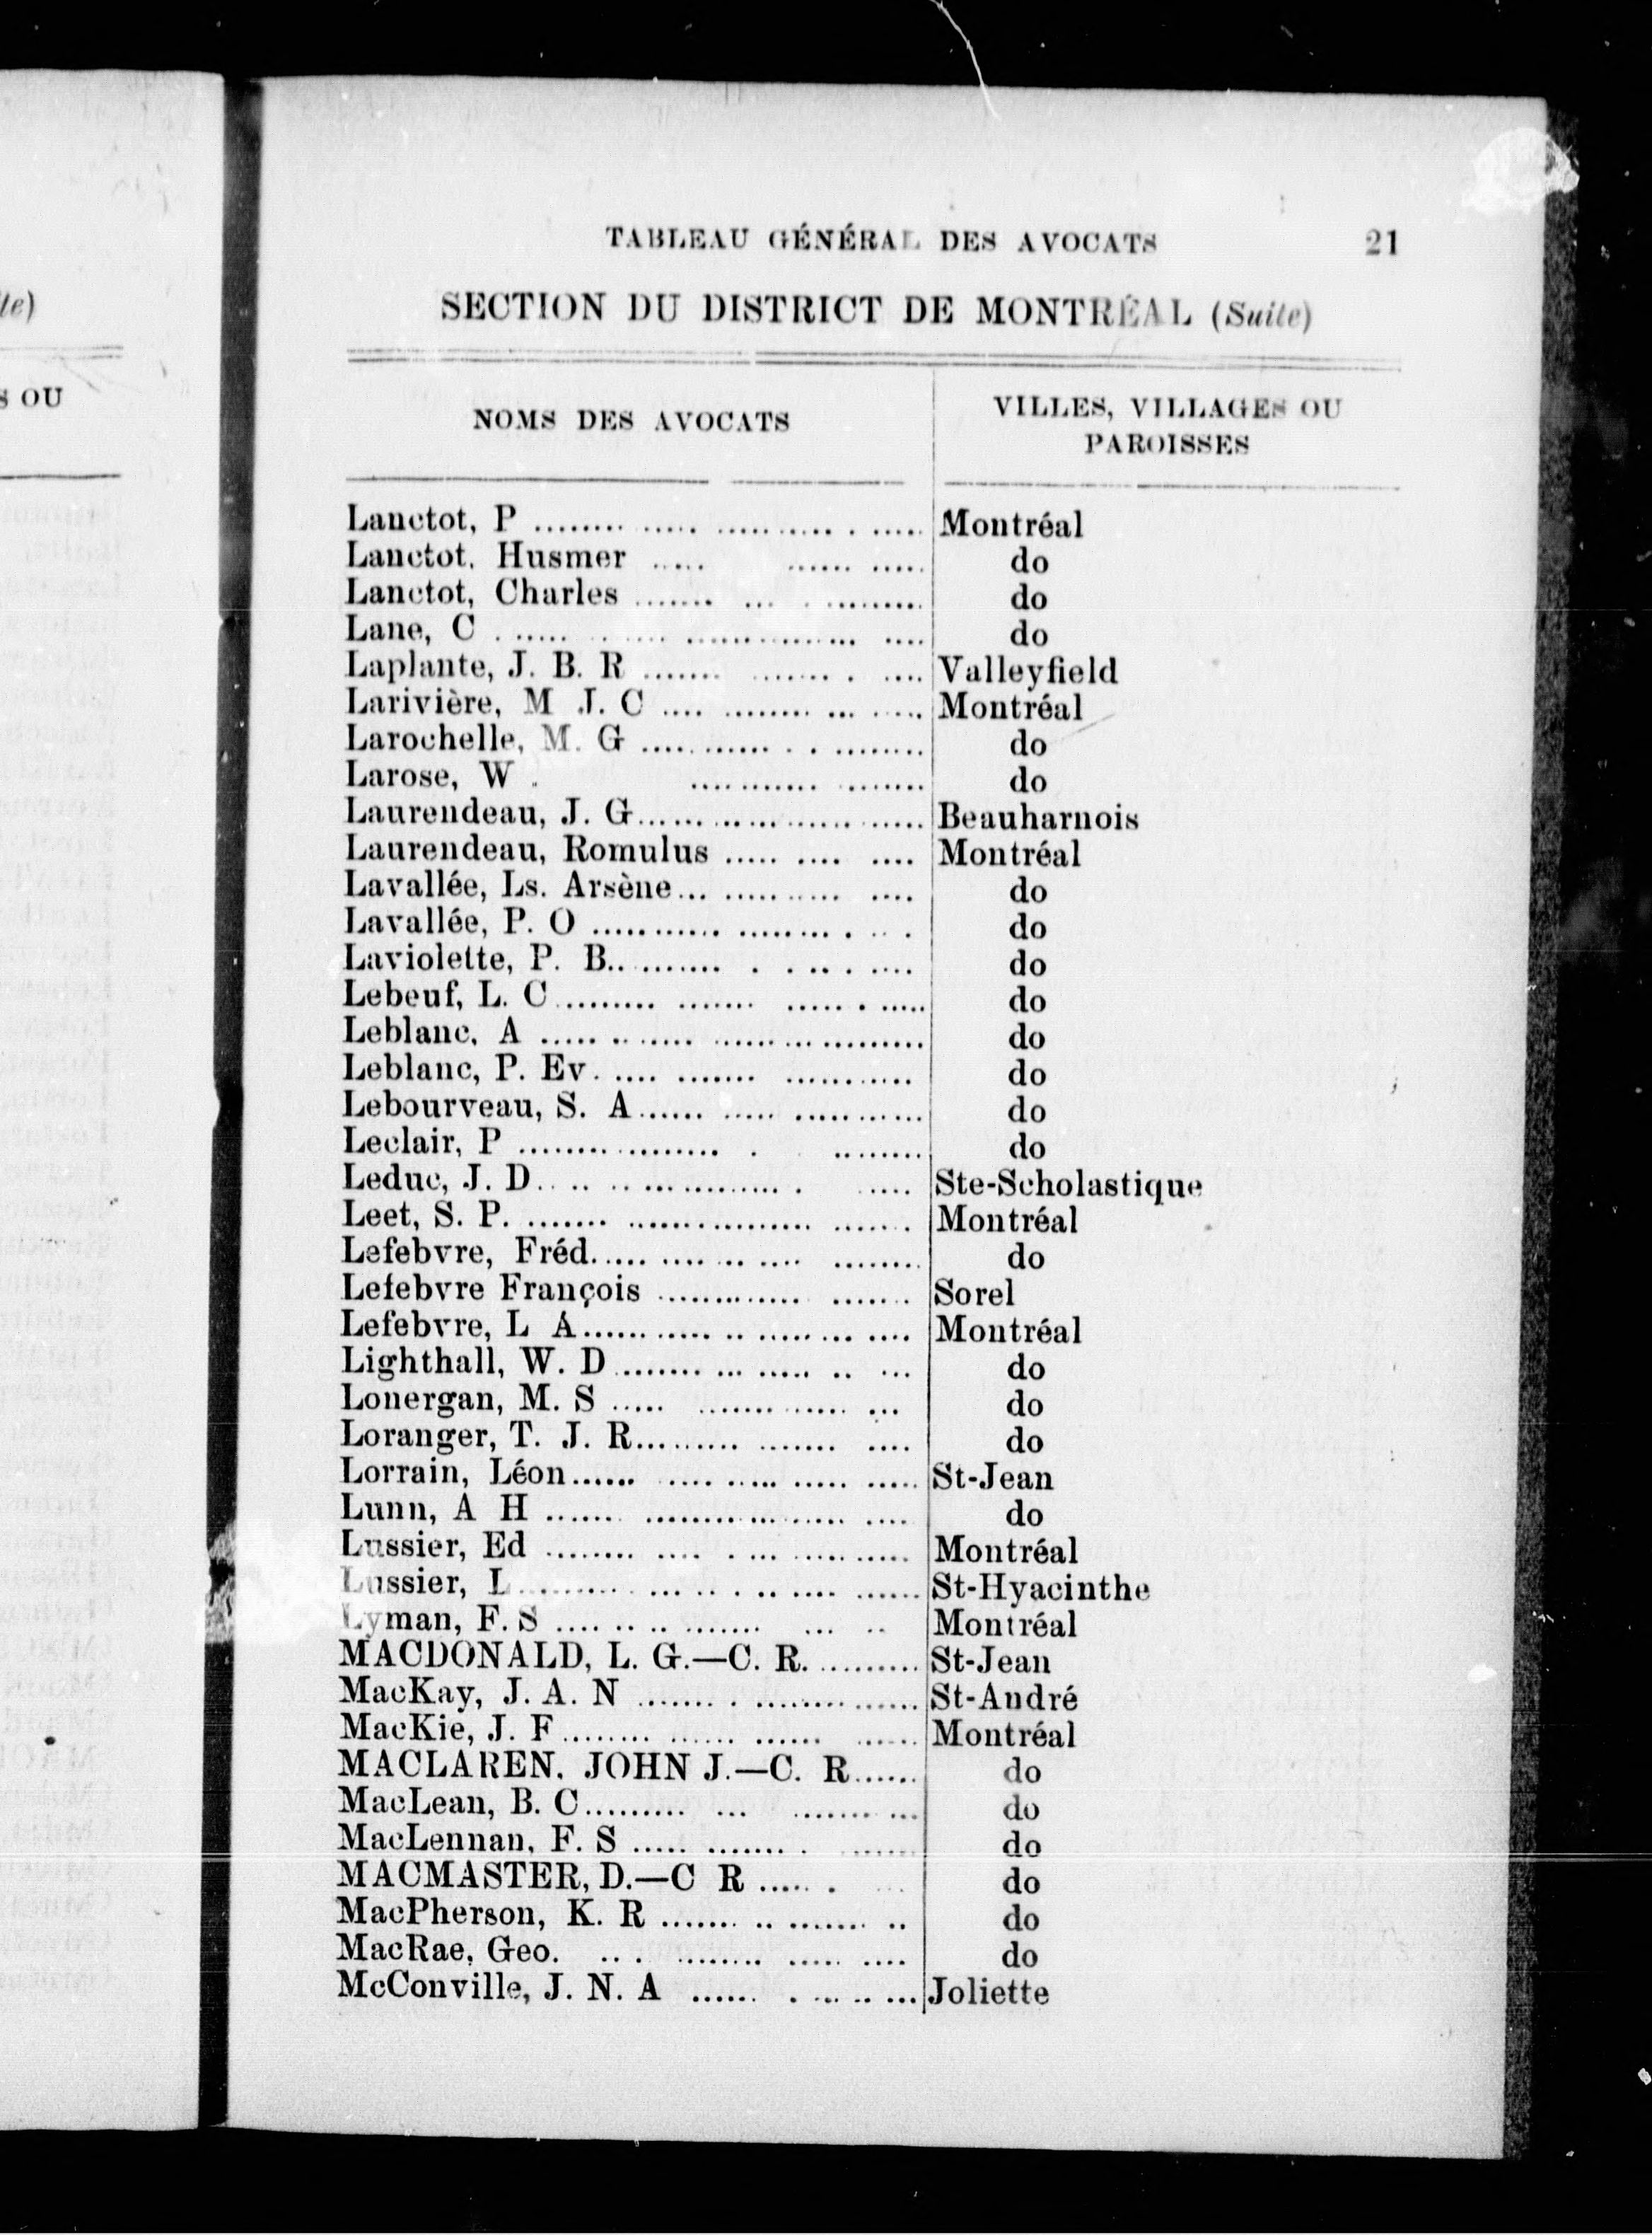 te)
S OU
TABLEAU GÉNÉRAL DES AVOCATS 21
SECTION DU DISTRICT DE MONTRÉAL (Suite)
NOMS DES AVOCATS
VILLES, VILLAGES OU
PAROISSES
Lanctot, P Montréal
Lanctot. Husmer do
Lanctot, Charles do
Lane, C do
Laplante, J. B. R Valleyfield
Larivière, M J. C Montréal
Larochelle, M. G do
Larose, W do
Laurendeau, J. G Beauharnois
Laurendeau, Romulus Montréal
Lavallée, Ls. Arsène do
Lavallée, P. O do
Laviolette, P. B do
Lebeuf, L. C do
Leblanc, A do
Leblanc, P. Ev. do
Lebourveau, S. A do
Leclair, P do
Leduc, J. D Ste-Scholastique
Leet, S. P. Montréal
Lefebvre, Fréd. do
Lefebvre François Sorel
Lefebvre, L A Montréal
Lighthall, W. D do
Lonergan, M. S do
Loranger, T. J. R do
Lorrain, Léon St-Jean
Lunn, A H do
Lussier, Ed Montréal
Lussier, L St-Hyacinthe
Lyman, F. S Montréal
MACDONALD, L. G.—C. R. St-Jean
MacKay, J. A. N St-André
MacKie, J. F Montréal
MACLAREN. JOHN J.—C. R do
MacLean, B. C do
MacLennan, F. S do
MACMASTER, D.—C R do
MacPherson, K. R do
MacRae, Geo. do
McConville, J. N. A Joliette